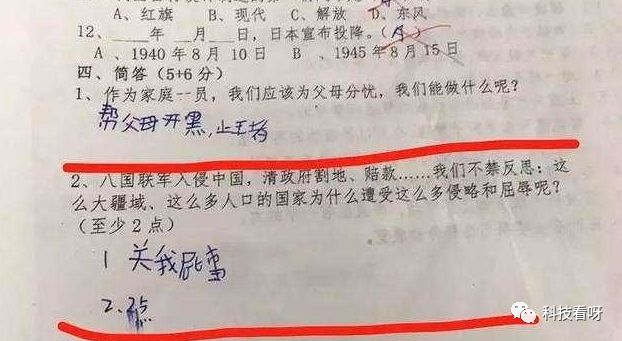 A、红旗 B、现代 C、解放 D、东风
12、____年____月____日,日本宣布投降。(A)
A、1940年8月10日 B、1945年8月15日
四、简答(5+6分)
1、作为家庭一员,我们应该为父母分忧,我们能做什么呢?
帮父母开黑,上王者
2、八国联军入侵中国,清政府割地、赔款……我们不禁反思:这
么大疆域、这么多人口的国家为什么遭受这么多侵略和屈辱呢?
(至少2点)
1 关我屁事
2、2点
科技看呀